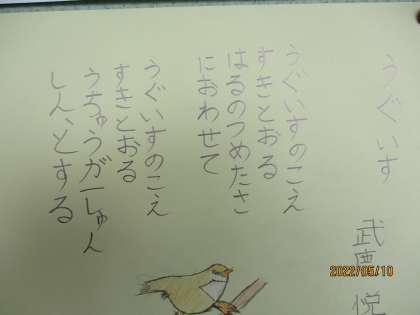 うぐいす
武鹿 悦
うぐいすのこえ
すきとおる
はるのつめたさ
におわせて
うぐいすのこえ
すきとおる
うちゅうが一しゅん
しん、とする
2022/05/10